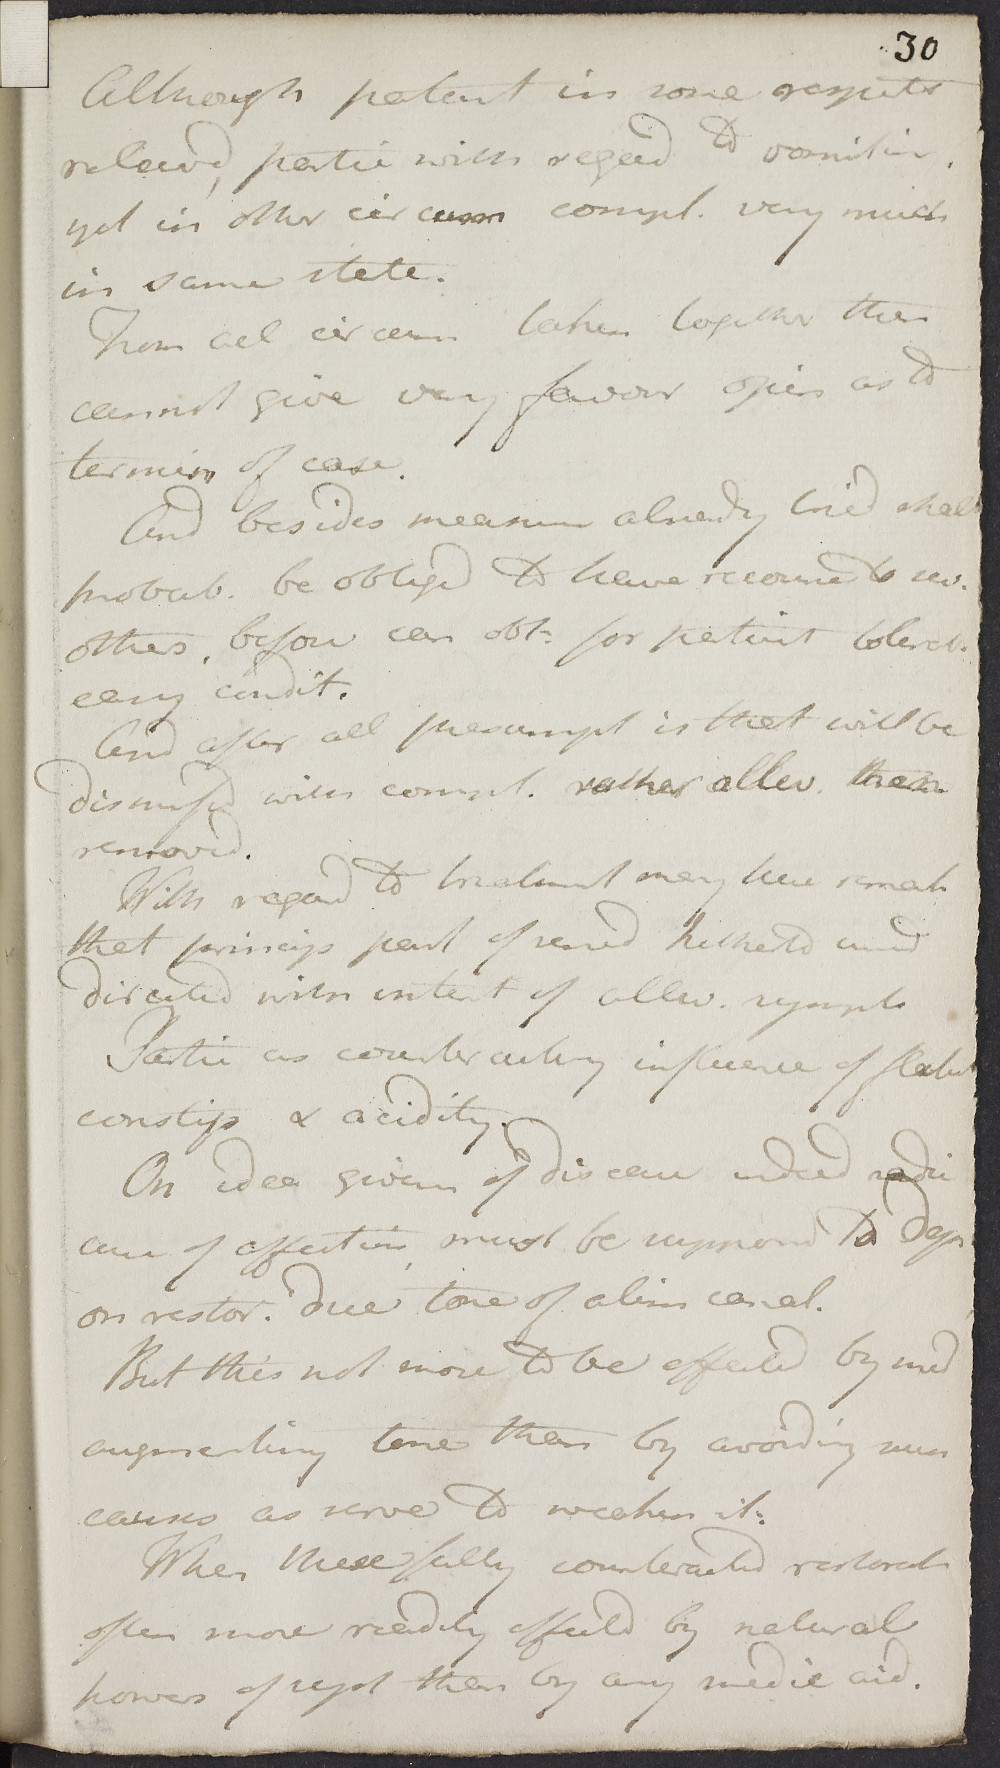 30
Although patient in some respects
relieved, partic with regard to vomitin,
yet in other circum compl. very much
in same state.
From all circum taken together then
cannot give very favour opin as to
termin of case.
And besides measures already tried shall
probab. be obliged to have recourse to sev.
others, before can obt. for patient tolerab.
easy condit.
And after all presumpt is that will be
dismissd with compl. rather allev. than
removd.
With regard to treatment may here remark
that princip part of remed hitherto used
directed with intent of allev. sympt
Partic as counteracting influence of flatul
constip & acidity.
On idea given of disease indeed radic
cure of affection, must be supposd to dep
on restor. due tone of alim canal.
But this not more to be effected by med
augmenting tone than by avoiding such
causes as serve to weaken it.
When these fully counteracted restorat
often more readily effectd by natural
powers of syst than by any medic aid.